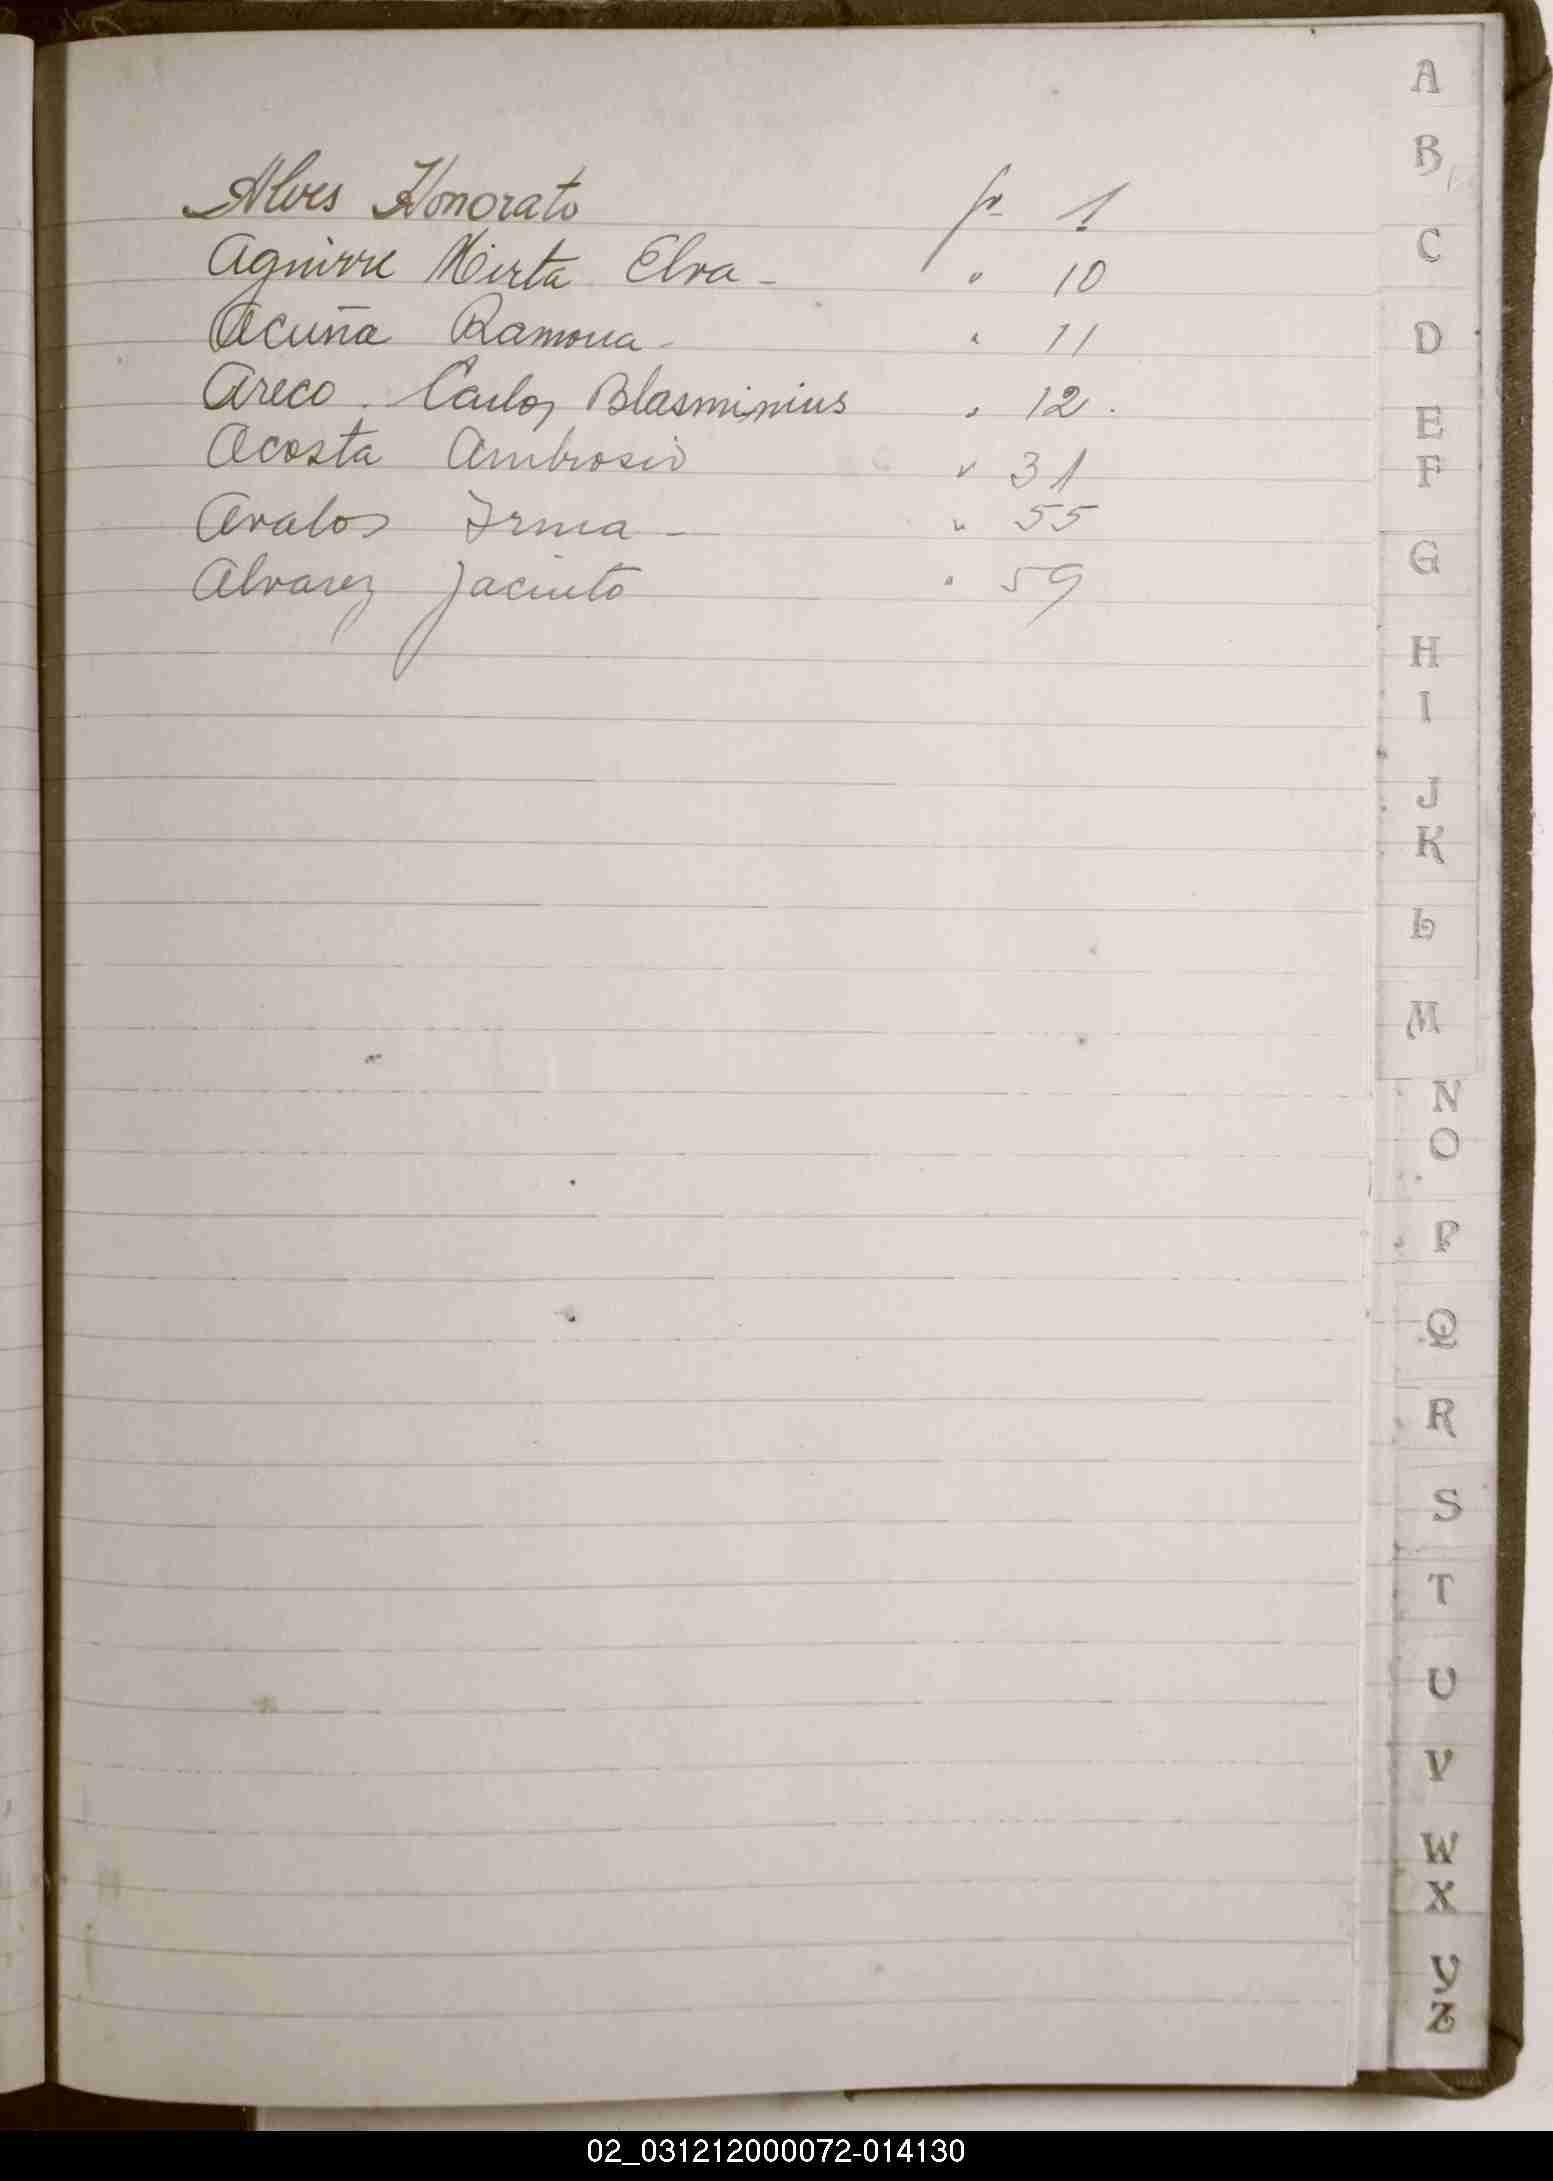 Alves Honorato fo 1
Aguirre Mirta Elva - " 10
Acuña Ramona - " 11
Areco. Carlos Blasminius " 12.
Acosta Ambrosio " 31
Avalos Irma - " 55
Alvarez Jacinto " 59
A
B
C
D
E
F
G
H
I
J
K
L
M
N
O
P
Q
R
S
T
U
V
W
X
Y
Z
02_031212000072-014130